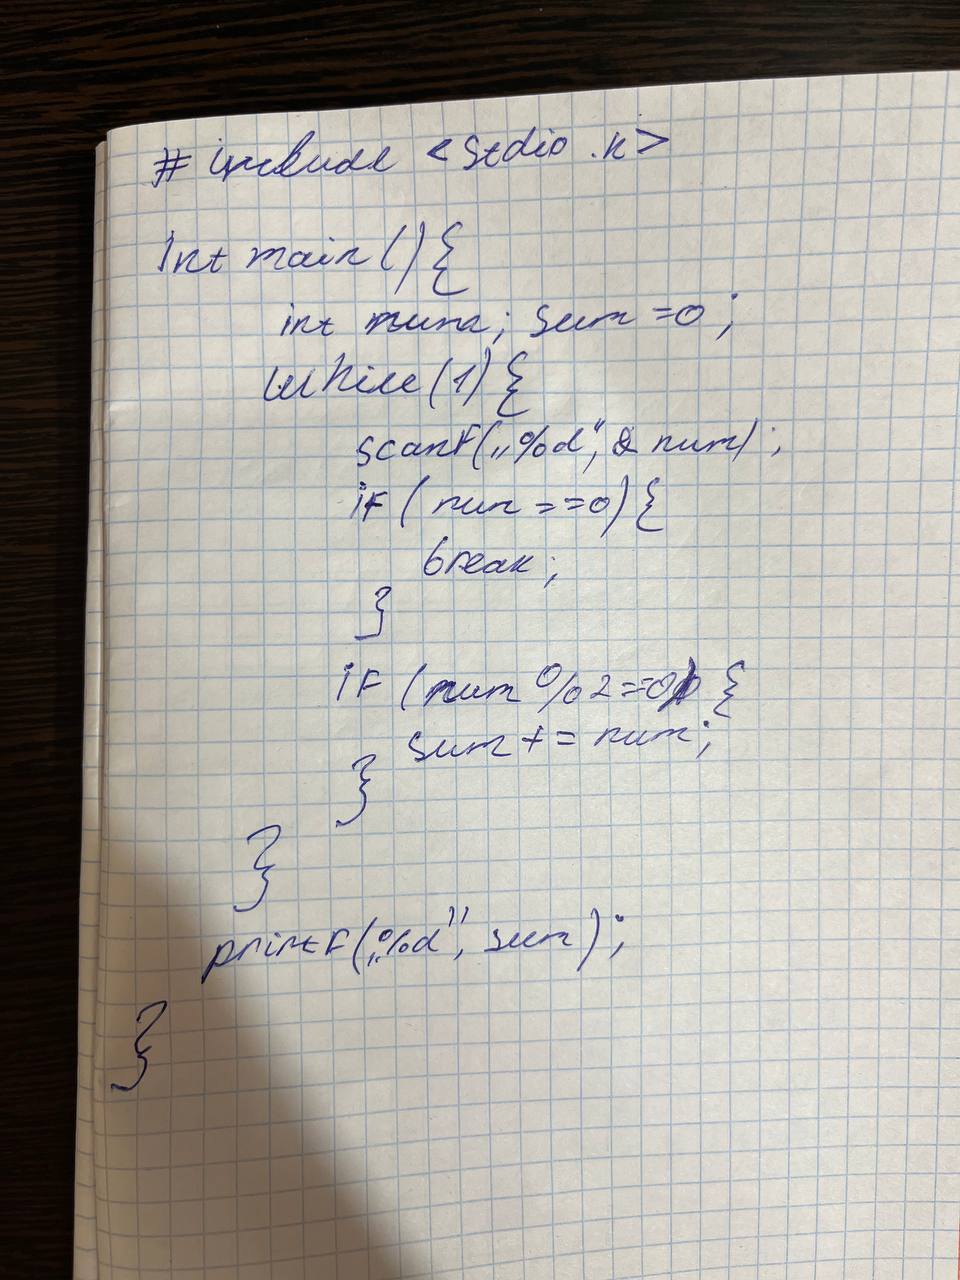 # include <stdio.h>
int main(){
int num; sum=0;
while(1){
scanf(„%d“, & num);
if (num ==0){
break;
}
if (num %2==0) {
sum += num;
}
}
printf(„%d”, sum);
}